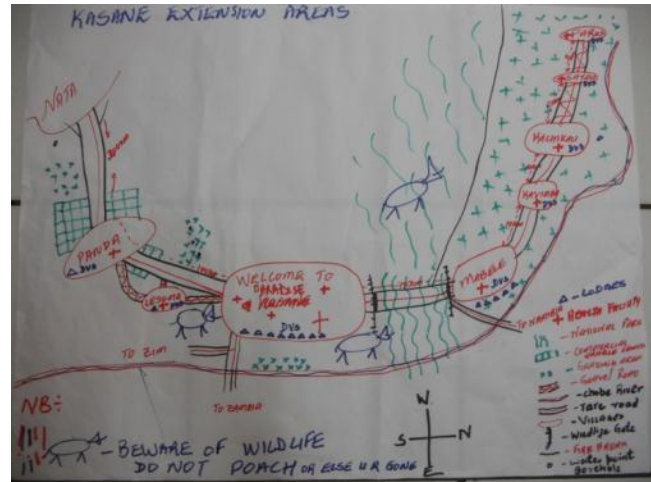 KASANE EXTENSION AREAS
NATA
PANDA
DVS
LESOMA
DVS
WELCOME TO
PARADISE
KASANE
DVS
MABELE
DVS
KAVIMBA
DVS
KACHIKAU
DVS
TO ZIM
TO ZAMBIA
TO NAMIBIA
- LODGES
- HEALTH FACILITY
- NATIONAL PARK
- COMMERCIAL
- GRAZING AREA
- GRAVEL ROAD
- Chobe River
- TARR road
- Villages
- Wildlife Gate
- FIRE BREAK
- Water point
Borehole
W
S N
E
NB:
- BEWARE OF WILDLIFE
DO NOT POACH OR ELSE U R GONE